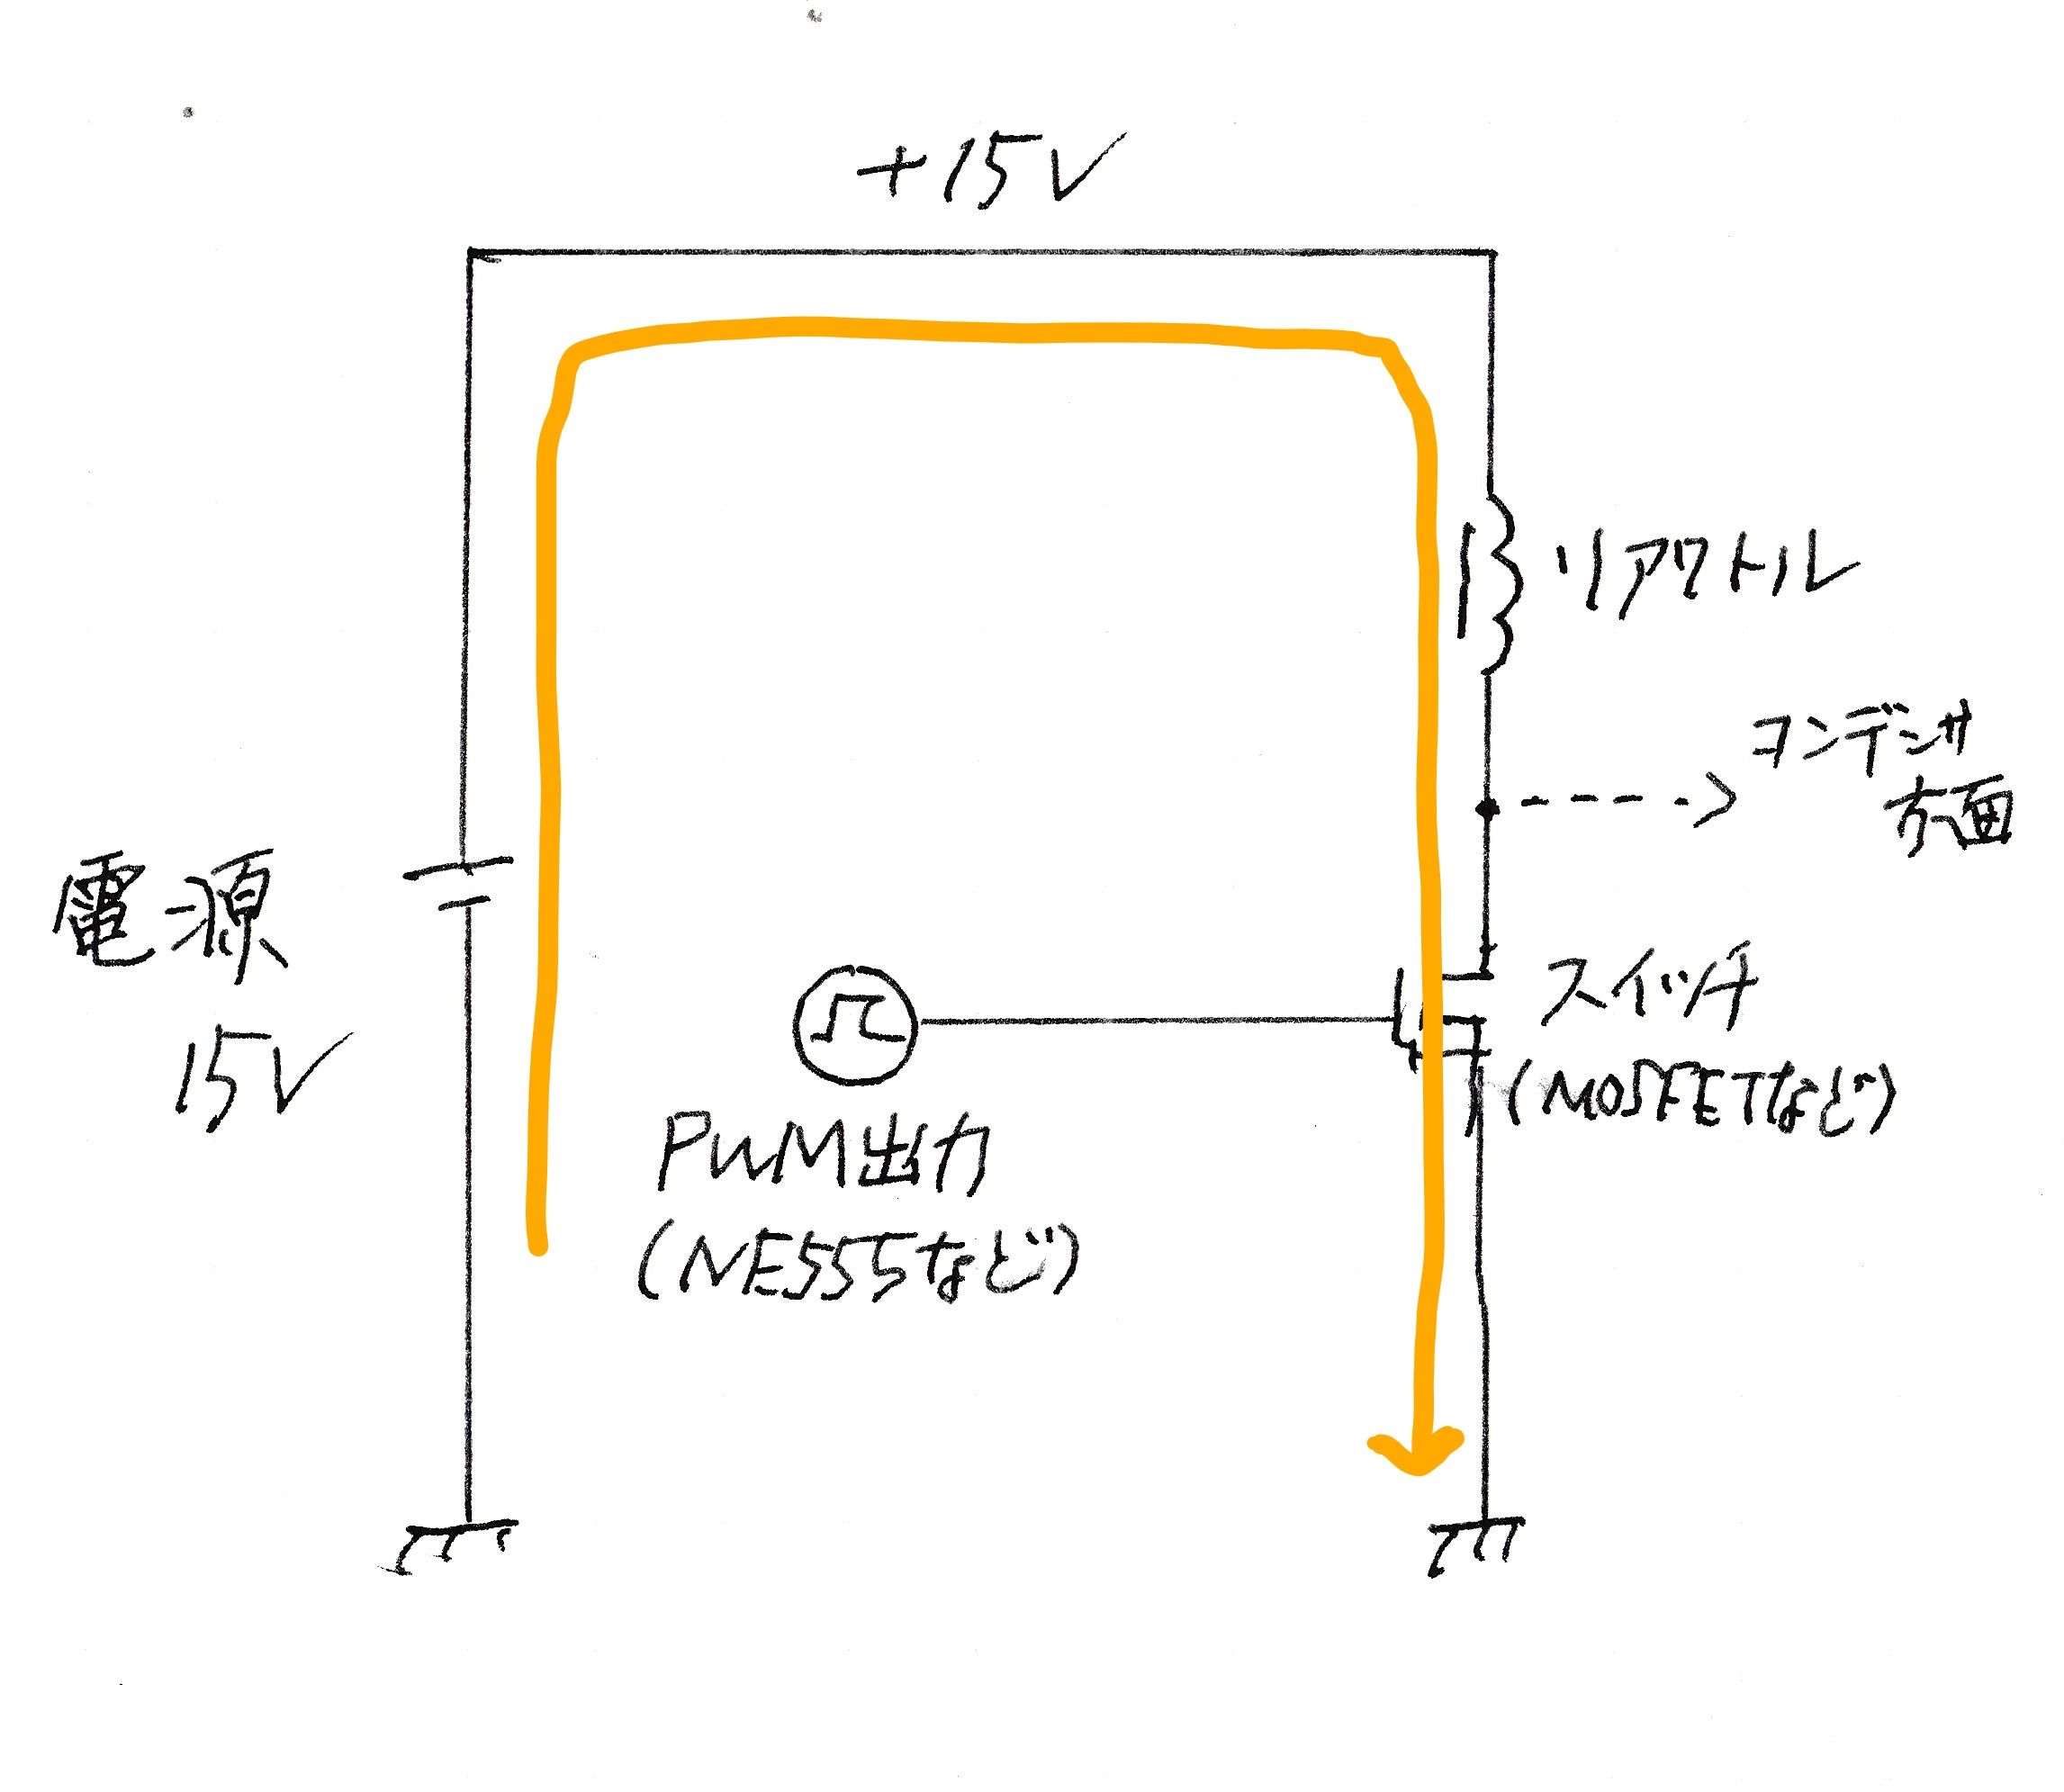 +15V
リアクトル
コンデンサ
方面
電源
15V
スイッチ
(MOSFETなど)
PWM出力
(NE555など)